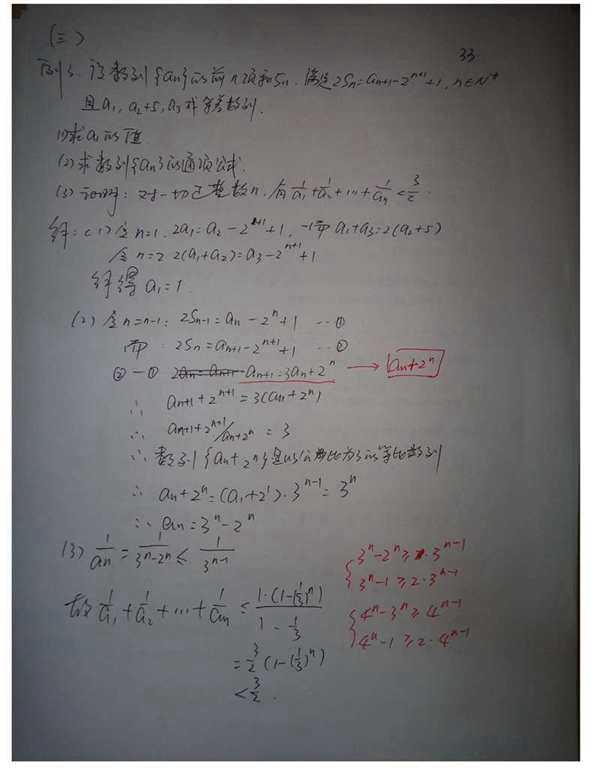 (三)
33
例3. 设数列{an}的前n项和Sn. 满足2Sn=an+1-2^{n+1}+1, n∈N*
且a1, a2+5, a3成等差数列.
(1)求a1的值
(2)求数列{an}的通项公式.
(3)证明: 对一切正整数n, 有1/a1+1/a2+…+1/an<3/2.
解:(1)令n=1, 2a1=a2-2^{n+1}+1, 而a1+a3=2(a2+5)
令n=2 2(a1+a2)=a3-2^{n+1}+1
解得a1=1.
(2)令n=n-1: 2Sn-1=an-2^n+1 …①
而: 2Sn=an+1-2^{n+1}+1 …②
②-① an+1=3an+2^n → an+2^n
∴ an+1+2^{n+1}=3(an+2^n)
∴ an+1+2^{n+1}/an+2^n=3
∴ 数列{an+2^n}是以公比为3的等比数列
∴ an+2^n=(a1+2^1)·3^{n-1}=3^n
∴ an=3^n-2^n
(3) 1/an=1/(3^n-2^n)≤1/3^{n-1}
故1/a1+1/a2+…+1/an≤1·(1-(1/3)^n)/(1-1/3)
=3/2(1-(1/3)^n)
<3/2.
3^n-2^n≥3^{n-1}
3^n-1≥2·3^{n-1}
4^n-3^n≥4^{n-1}
4^n-1≥2·4^{n-1}